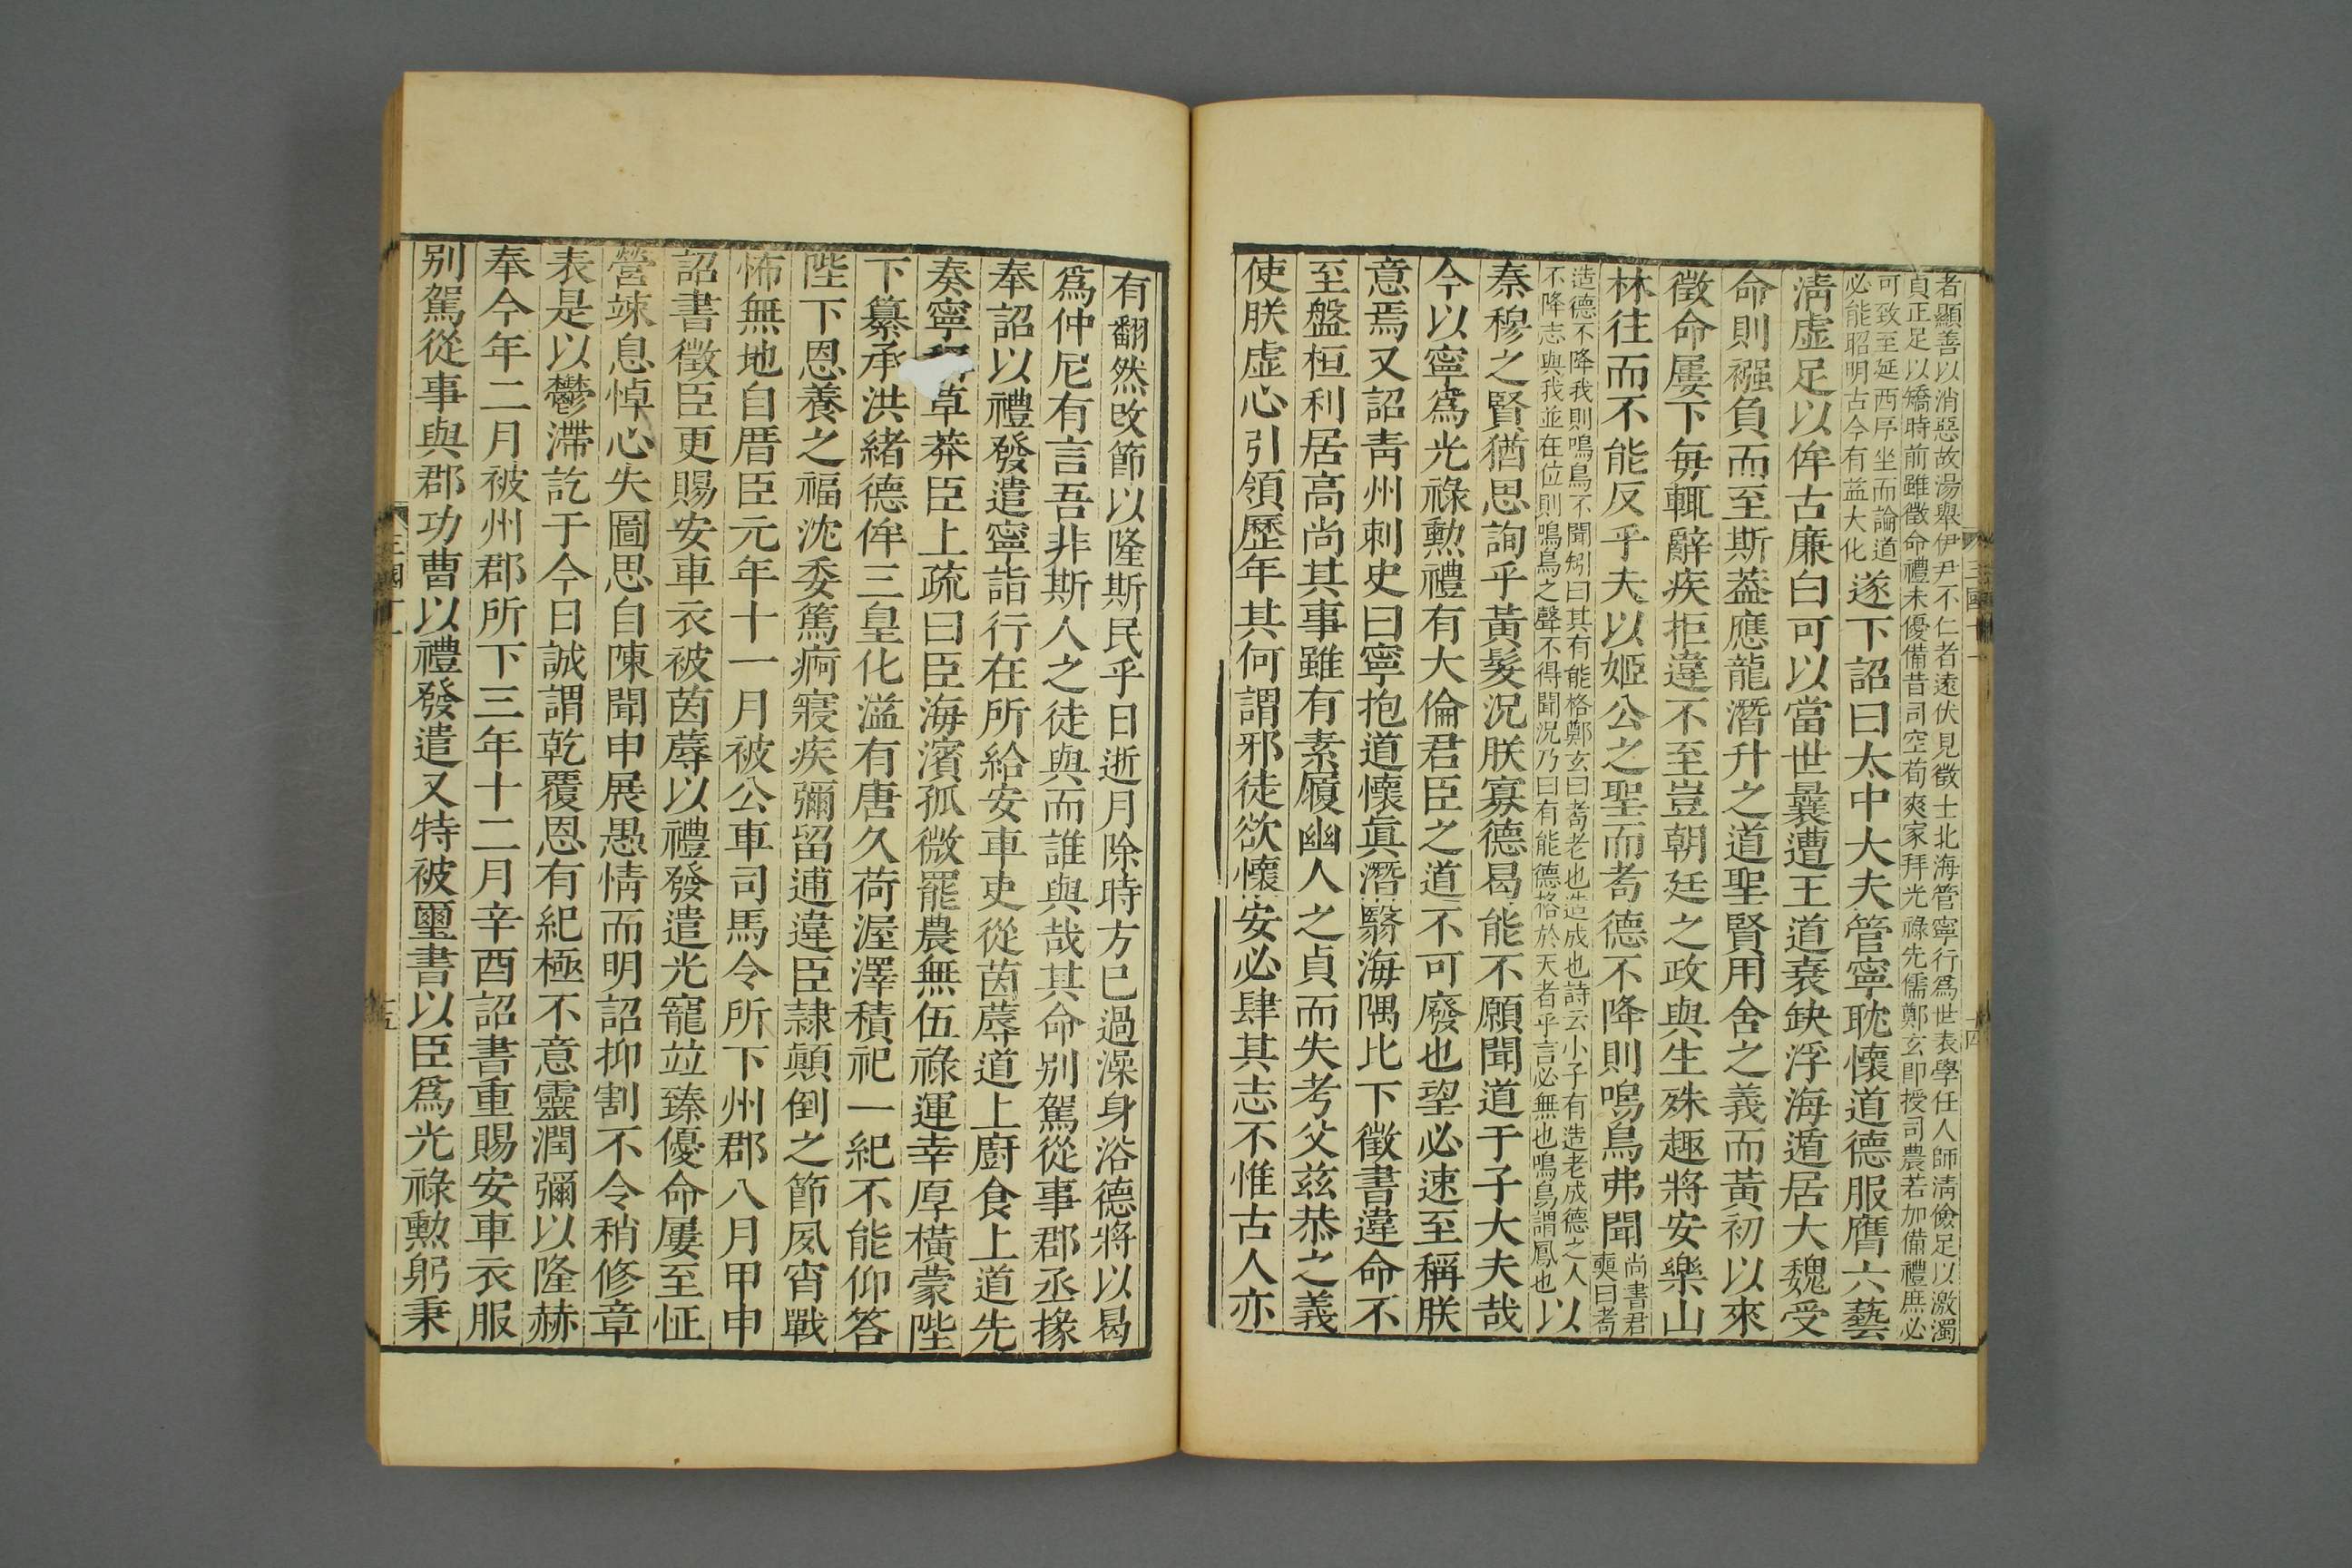 者顯善以消惡故湯舉伊尹不仁者遠伏見徵士北海管寧行爲世表學任人師淸儉足以激濁
貞正足以矯時前雖徵命禮未優備昔司空荀爽家拜光祿先儒鄭玄卽授司農若加備禮庶必
可致至延西序坐而論道
必能昭明古今有益大化
遂下詔曰太中大夫管寧耽懷道德服膺六藝
淸虛足以侔古廉白可以當世曩遭王道衰缺浮海遁居大魏受
命則襁負而至斯葢應龍潛升之道聖賢用舍之義而黃初以來
徵命屢下每輒辭疾拒違不至豈朝廷之政與生殊趣將安樂山
林往而不能反乎夫以姬公之聖而耇德不降則鳴鳥弗聞
尚書君
奭曰耇
造德不降我則鳴鳥不聞矧曰其有能格鄭玄曰耇老也造成也詩云小子有造老成德之人
不降志與我並在位則鳴鳥之聲不得聞況乃曰有能德格於天者乎言必無也鳴鳥謂鳳也
以
秦穆之賢猶思詢乎黃髮況朕寡德曷能不願聞道于子大夫哉
今以寧爲光祿勳禮有大倫君臣之道不可廢也望必速至稱朕
意焉又詔靑州刺史曰寧抱道懷眞潛翳海隅比下徵書違命不
至盤桓利居高尚其事雖有素履幽人之貞而失考父茲恭之義
使朕虛心引領歷年其何謂邪徒欲懷安必肆其志不惟古人亦
三國十一
十四
有翻然改節以隆斯民乎日逝月除時方已過澡身浴德將以曷
爲仲尼有言吾非斯人之徒與而誰與哉其命别駕從事郡丞掾
奉詔以禮發遣寧詣行在所給安車吏從茵蓐道上廚食上道先
奏寧草莽臣上疏曰臣海濱孤微罷農無伍祿運幸厚橫蒙陛
下纂承洪緒德侔三皇化溢有唐久荷渥澤積祀一紀不能仰答
陛下恩養之福沈委篤痾寢疾彌留逋違臣隷顚倒之節夙宵戰
怖無地自厝臣元年十一月被公車司馬令所下州郡八月甲申
詔書徵臣更賜安車衣被茵蓐以禮發遣光寵竝臻優命屢至怔
營竦息悼心失圖思自陳聞申展愚情而明詔抑割不令稍修章
表是以鬱滯訖于今日誠謂乾覆恩有紀極不意靈潤彌以隆赫
奉今年二月被州郡所下三年十二月辛酉詔書重賜安車衣服
别駕從事與郡功曹以禮發遣又特被璽書以臣爲光祿勳躬秉
三國十一
十五